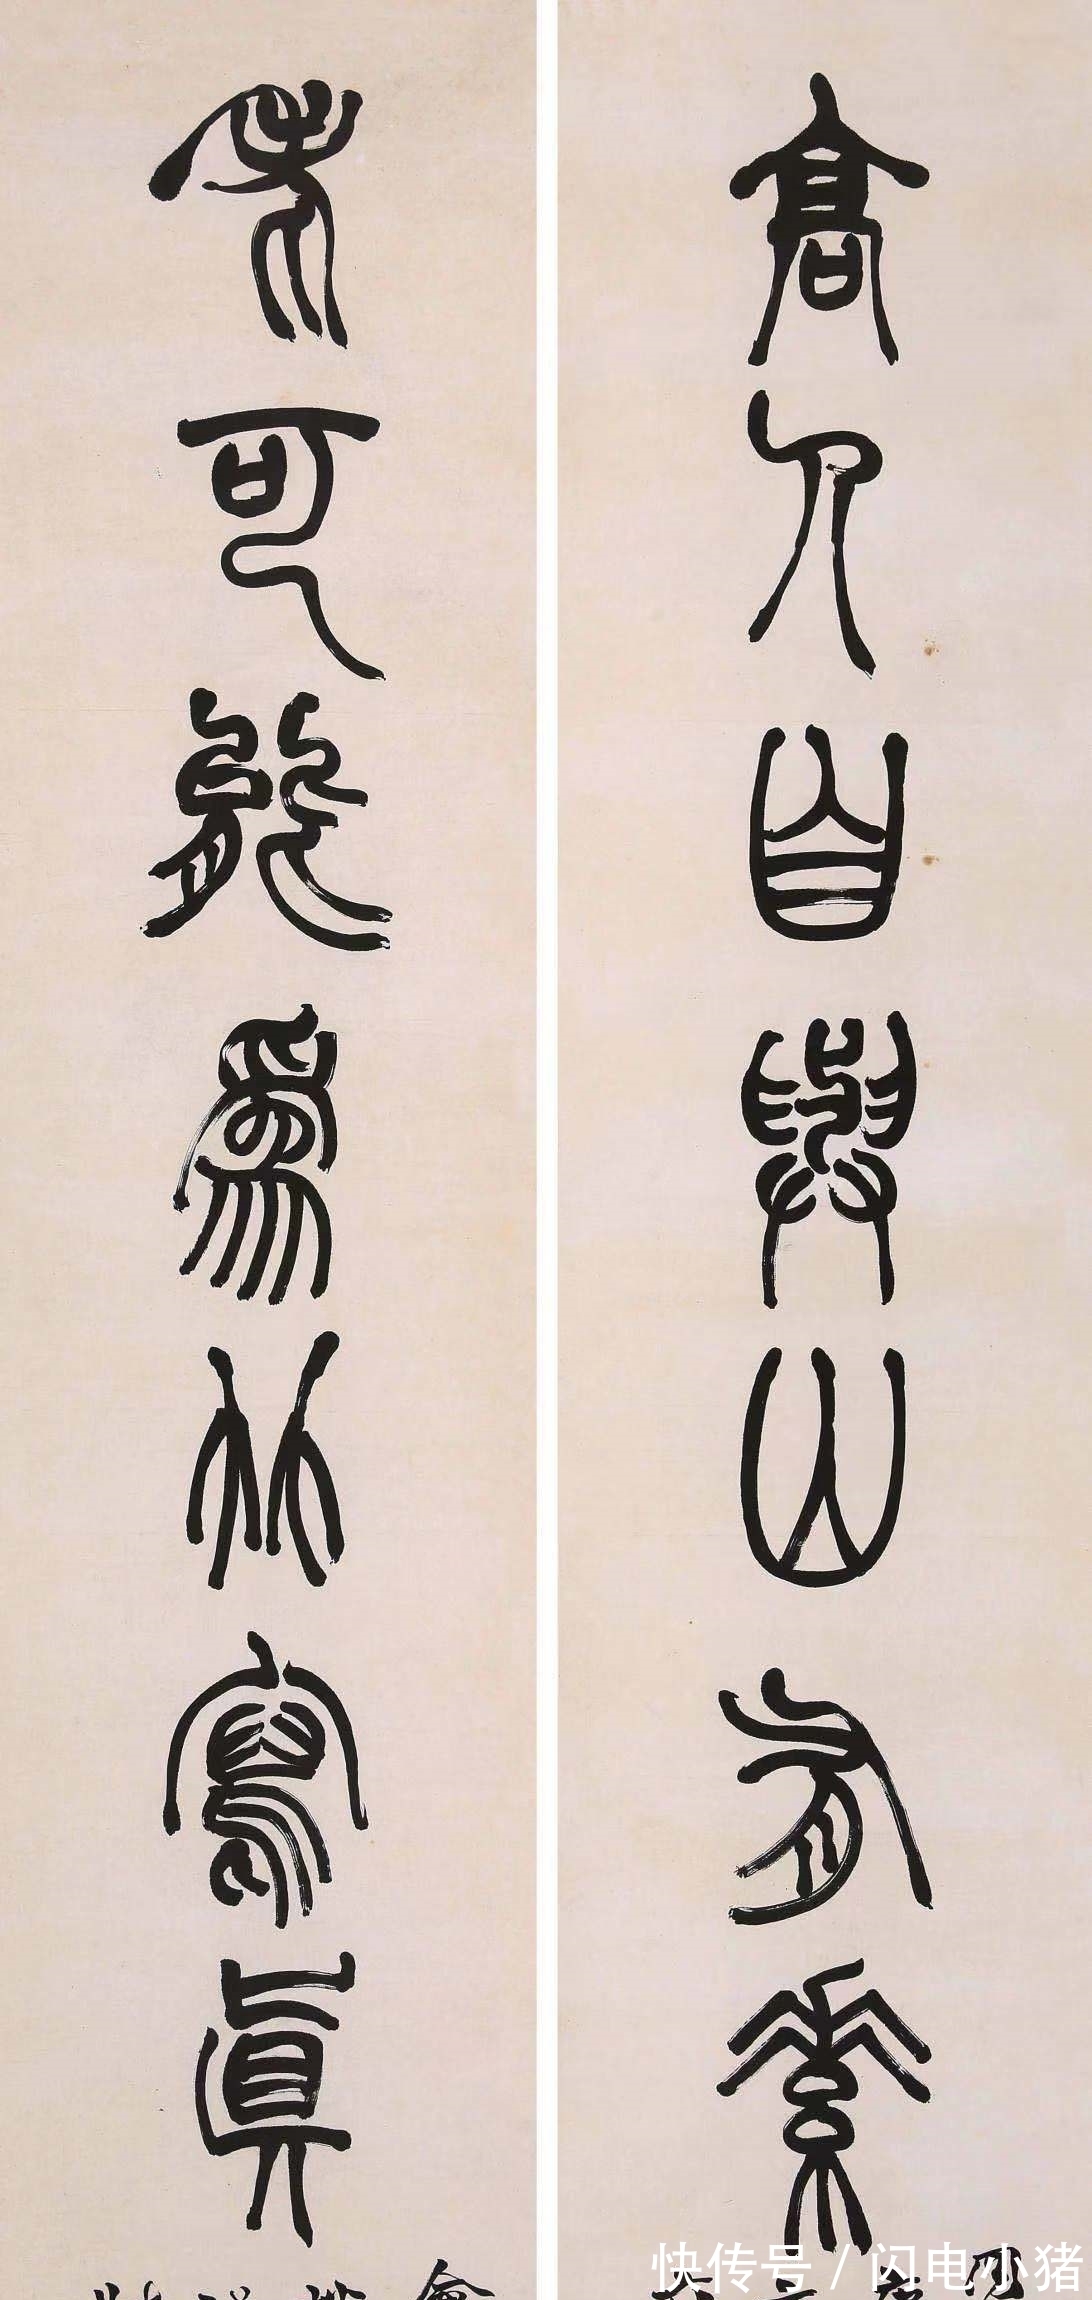 高人自與山有素
老可能為竹寫真
快传号 / 闪电小猪